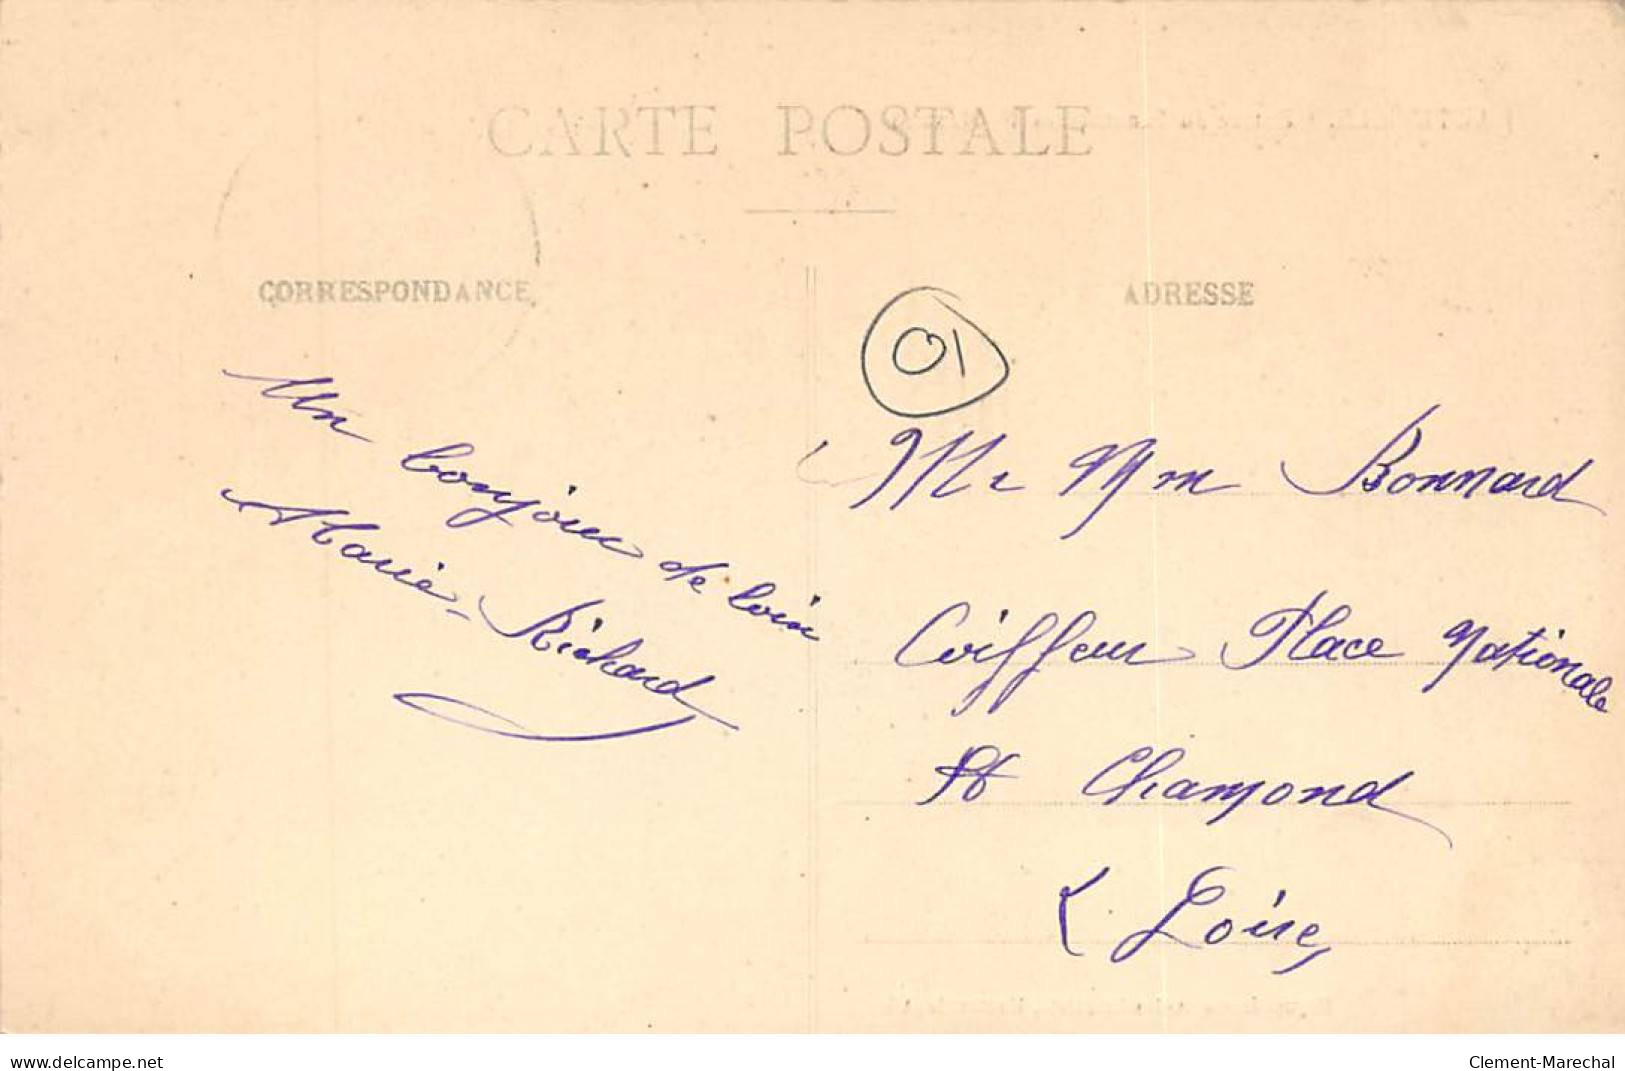 CARTE POSTALE
CORRESPONDANCE
ADRESSE
01
Un bonjour de loin
Marie Richard
Mr Mm Bonnard
Coiffeur Place Nationale
St Chamond
Loire
www.delcampe.net
Clement-Marechal